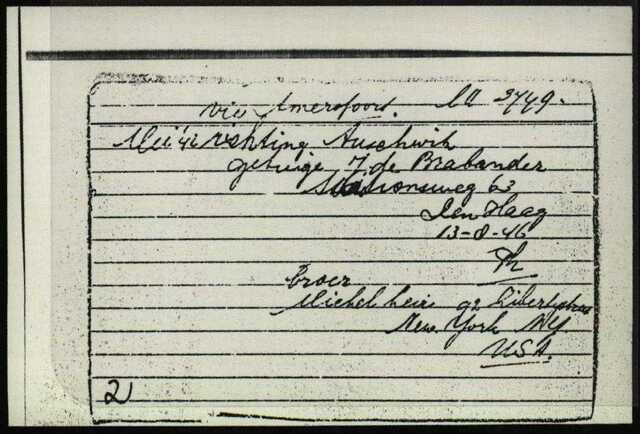 via Amersfoort. 3449.
Mei '42 richting Auschwitz
getuige J de Brabander
Stationsweg 63
Den Haag
13-8-46
Th
broer
Michel 92 Libertystreet
New York NY
USA.
2